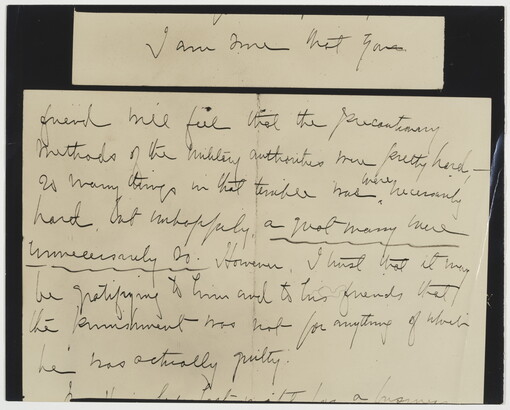 I am sure that your
friend will feel that the precautionary
methods of the military authorities were pretty hard –
so many things in that terrible war were necessarily
hard, but unhappily, a great many were
unnecessarily so. However, I trust that it may
be gratifying to him and to his friends that
the punishment was not for anything of which
he was actually guilty.